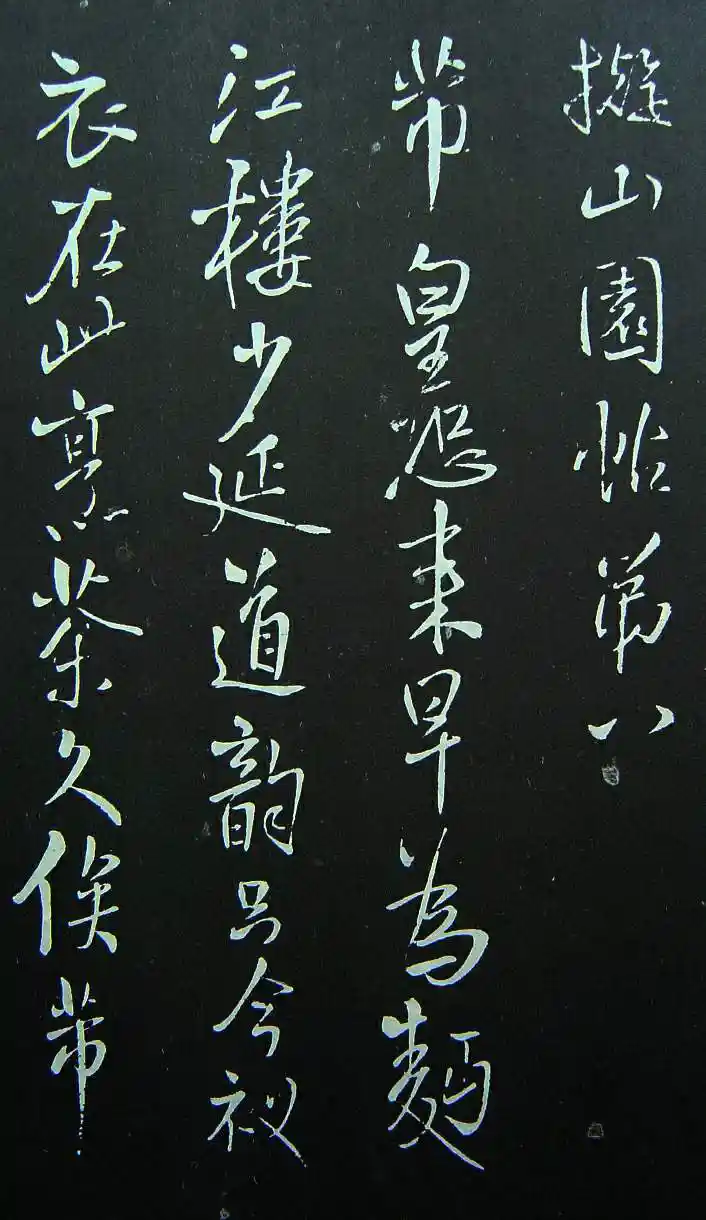 擬山園帖第八
芾皇恐来早為麵
江樓少延道韵只今衩
衣在此烹茶久俟芾